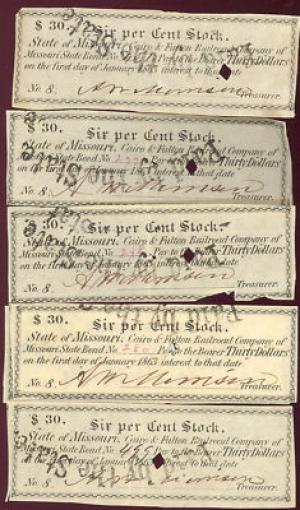 $ 30.
Six per Cent Stock.
State of Missouri, Cairo & Fulton Railroad Company of
Missouri State Bond No. Pay to the Bearer Thirty Dollars
on the first day of January 1863 interest to that date
No. 8.
Treasurer.
$ 30.
Six per Cent Stock.
State of Missouri, Cairo & Fulton Railroad Company of
Missouri State Bond No. Pay to the Bearer Thirty Dollars
on the first day of January 1863 interest to that date
No. 8.
Treasurer.
$ 30.
Six per Cent Stock.
State of Missouri, Cairo & Fulton Railroad Company of
Missouri State Bond No. Pay to the Bearer Thirty Dollars
on the first day of January 1863 interest to that date
No. 8.
Treasurer.
$ 30.
Paid by the
Six per Cent Stock.
State of Missouri, Cairo & Fulton Railroad Company of
Missouri State Bond No. 280 Pay to the Bearer Thirty Dollars
on the first day of January 1863 interest to that date
No. 8.
Treasurer.
$ 30.
Six per Cent Stock.
State of Missouri, Cairo & Fulton Railroad Company of
State Bond No. 499 Pay to the Bearer Thirty Dollars
day of January 1863 interest to that date
No. 8.
Treasurer.